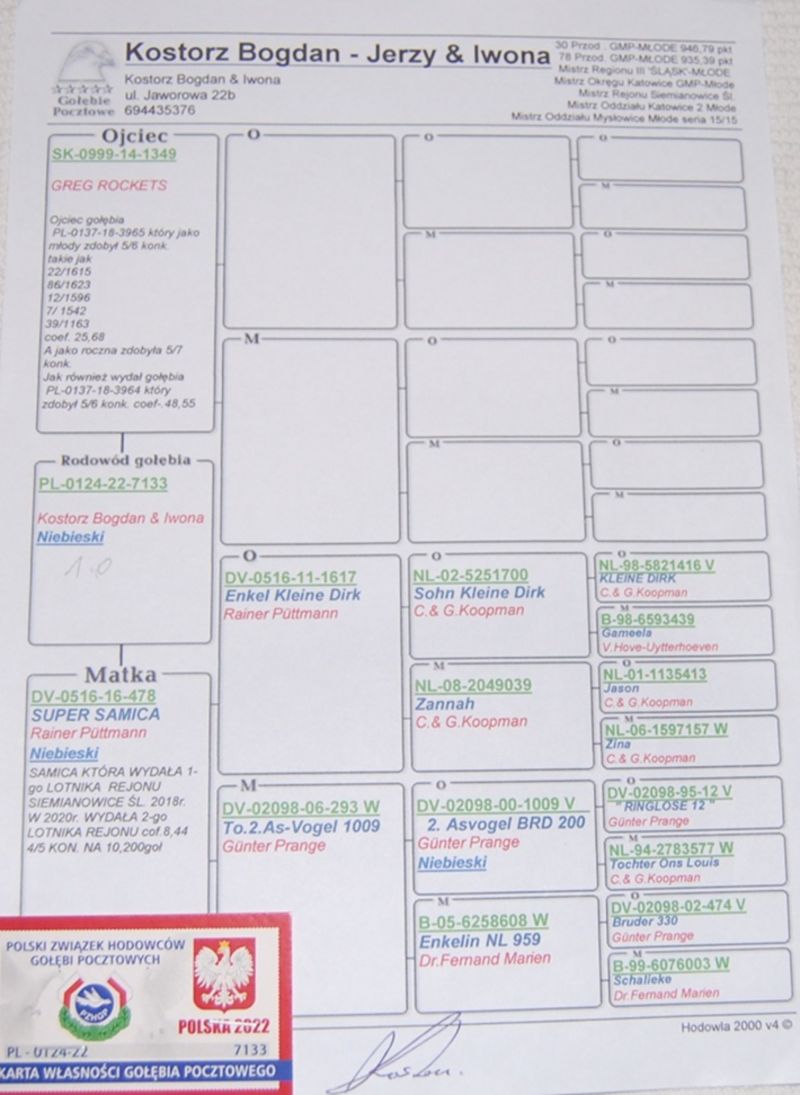 Kostorz Bogdan - Jerzy & Iwona
Kostorz Bogdan & Iwona
ul. Jaworowa 22b
694435376
Gołębie
Pocztowe
30 Przod . GMP-MŁODE 946,79 pkt
78 Przod. GMP-MŁODE 935,39 pkt
Mistrz Regionu III "ŚLĄSK-MŁODE
Mistrz Okręgu Katowice GMP-Młode
Mistrz Rejonu Siemianowice Śl.
Mistrz Oddziału Katowice 2 Młode
Mistrz Oddziału Mysłowice Młode seria 15/15
Ojciec
SK-0999-14-1349
GREG ROCKETS
Ojciec gołębia
PL-0137-18-3965 który jako
młody zdobył 5/6 konk.
takie jak
22/1615
86/1623
12/1596
7/ 1542
39/1163
coef. 25,68
A jako roczna zdobyła 5/7
konk.
Jak również wydał gołębia
PL-0137-18-3964 który
zdobył 5/6 konk. coef-.48,55
Rodowód gołebia
PL-0124-22-7133
Kostorz Bogdan & Iwona
Niebieski
1.0
Matka
DV-0516-16-478
SUPER SAMICA
Rainer Püttmann
Niebieski
SAMICA KTÓRA WYDAŁA 1-
go LOTNIKA REJONU
SIEMIANOWICE ŚL. 2018r.
W 2020r. WYDAŁA 2-go
LOTNIKA REJONU cof.8,44
4/5 KON. NA 10,200goł
O
M
O
DV-0516-11-1617
Enkel Kleine Dirk
Rainer Püttmann
M
DV-02098-06-293 W
To.2.As-Vogel 1009
Günter Prange
O
M
O
M
O
NL-02-5251700
Sohn Kleine Dirk
C.& G.Koopman
M
NL-08-2049039
Zannah
C.& G.Koopman
O
DV-02098-00-1009 V
2. Asvogel BRD 200
Günter Prange
Niebieski
M
B-05-6258608 W
Enkelin NL 959
Dr.Fernand Marien
O
M
O
M
O
M
O
M
O
NL-98-5821416 V
KLEINE DIRK
C.& G.Koopman
M
B-98-6593439
Gameela
V.Hove-Uytterhoeven
O
NL-01-1135413
Jason
C.& G.Koopman
M
NL-06-1597157 W
Zina
C.& G.Koopman
O
DV-02098-95-12 V
" RINGLOSE 12 "
Günter Prange
M
NL-94-2783577 W
Tochter Ons Louis
C.& G.Koopman
O
DV-02098-02-474 V
Bruder 330
Günter Prange
M
B-99-6076003 W
Schalieke
Dr.Fernand Marien
Hodowla 2000 v4 ©
POLSKI ZWIĄZEK HODOWCÓW
GOŁĘBI POCZTOWYCH
PZHGP
POLSKA 2022
PL - 0124-22 7133
KARTA WŁASNOŚCI GOŁĘBIA POCZTOWEGO